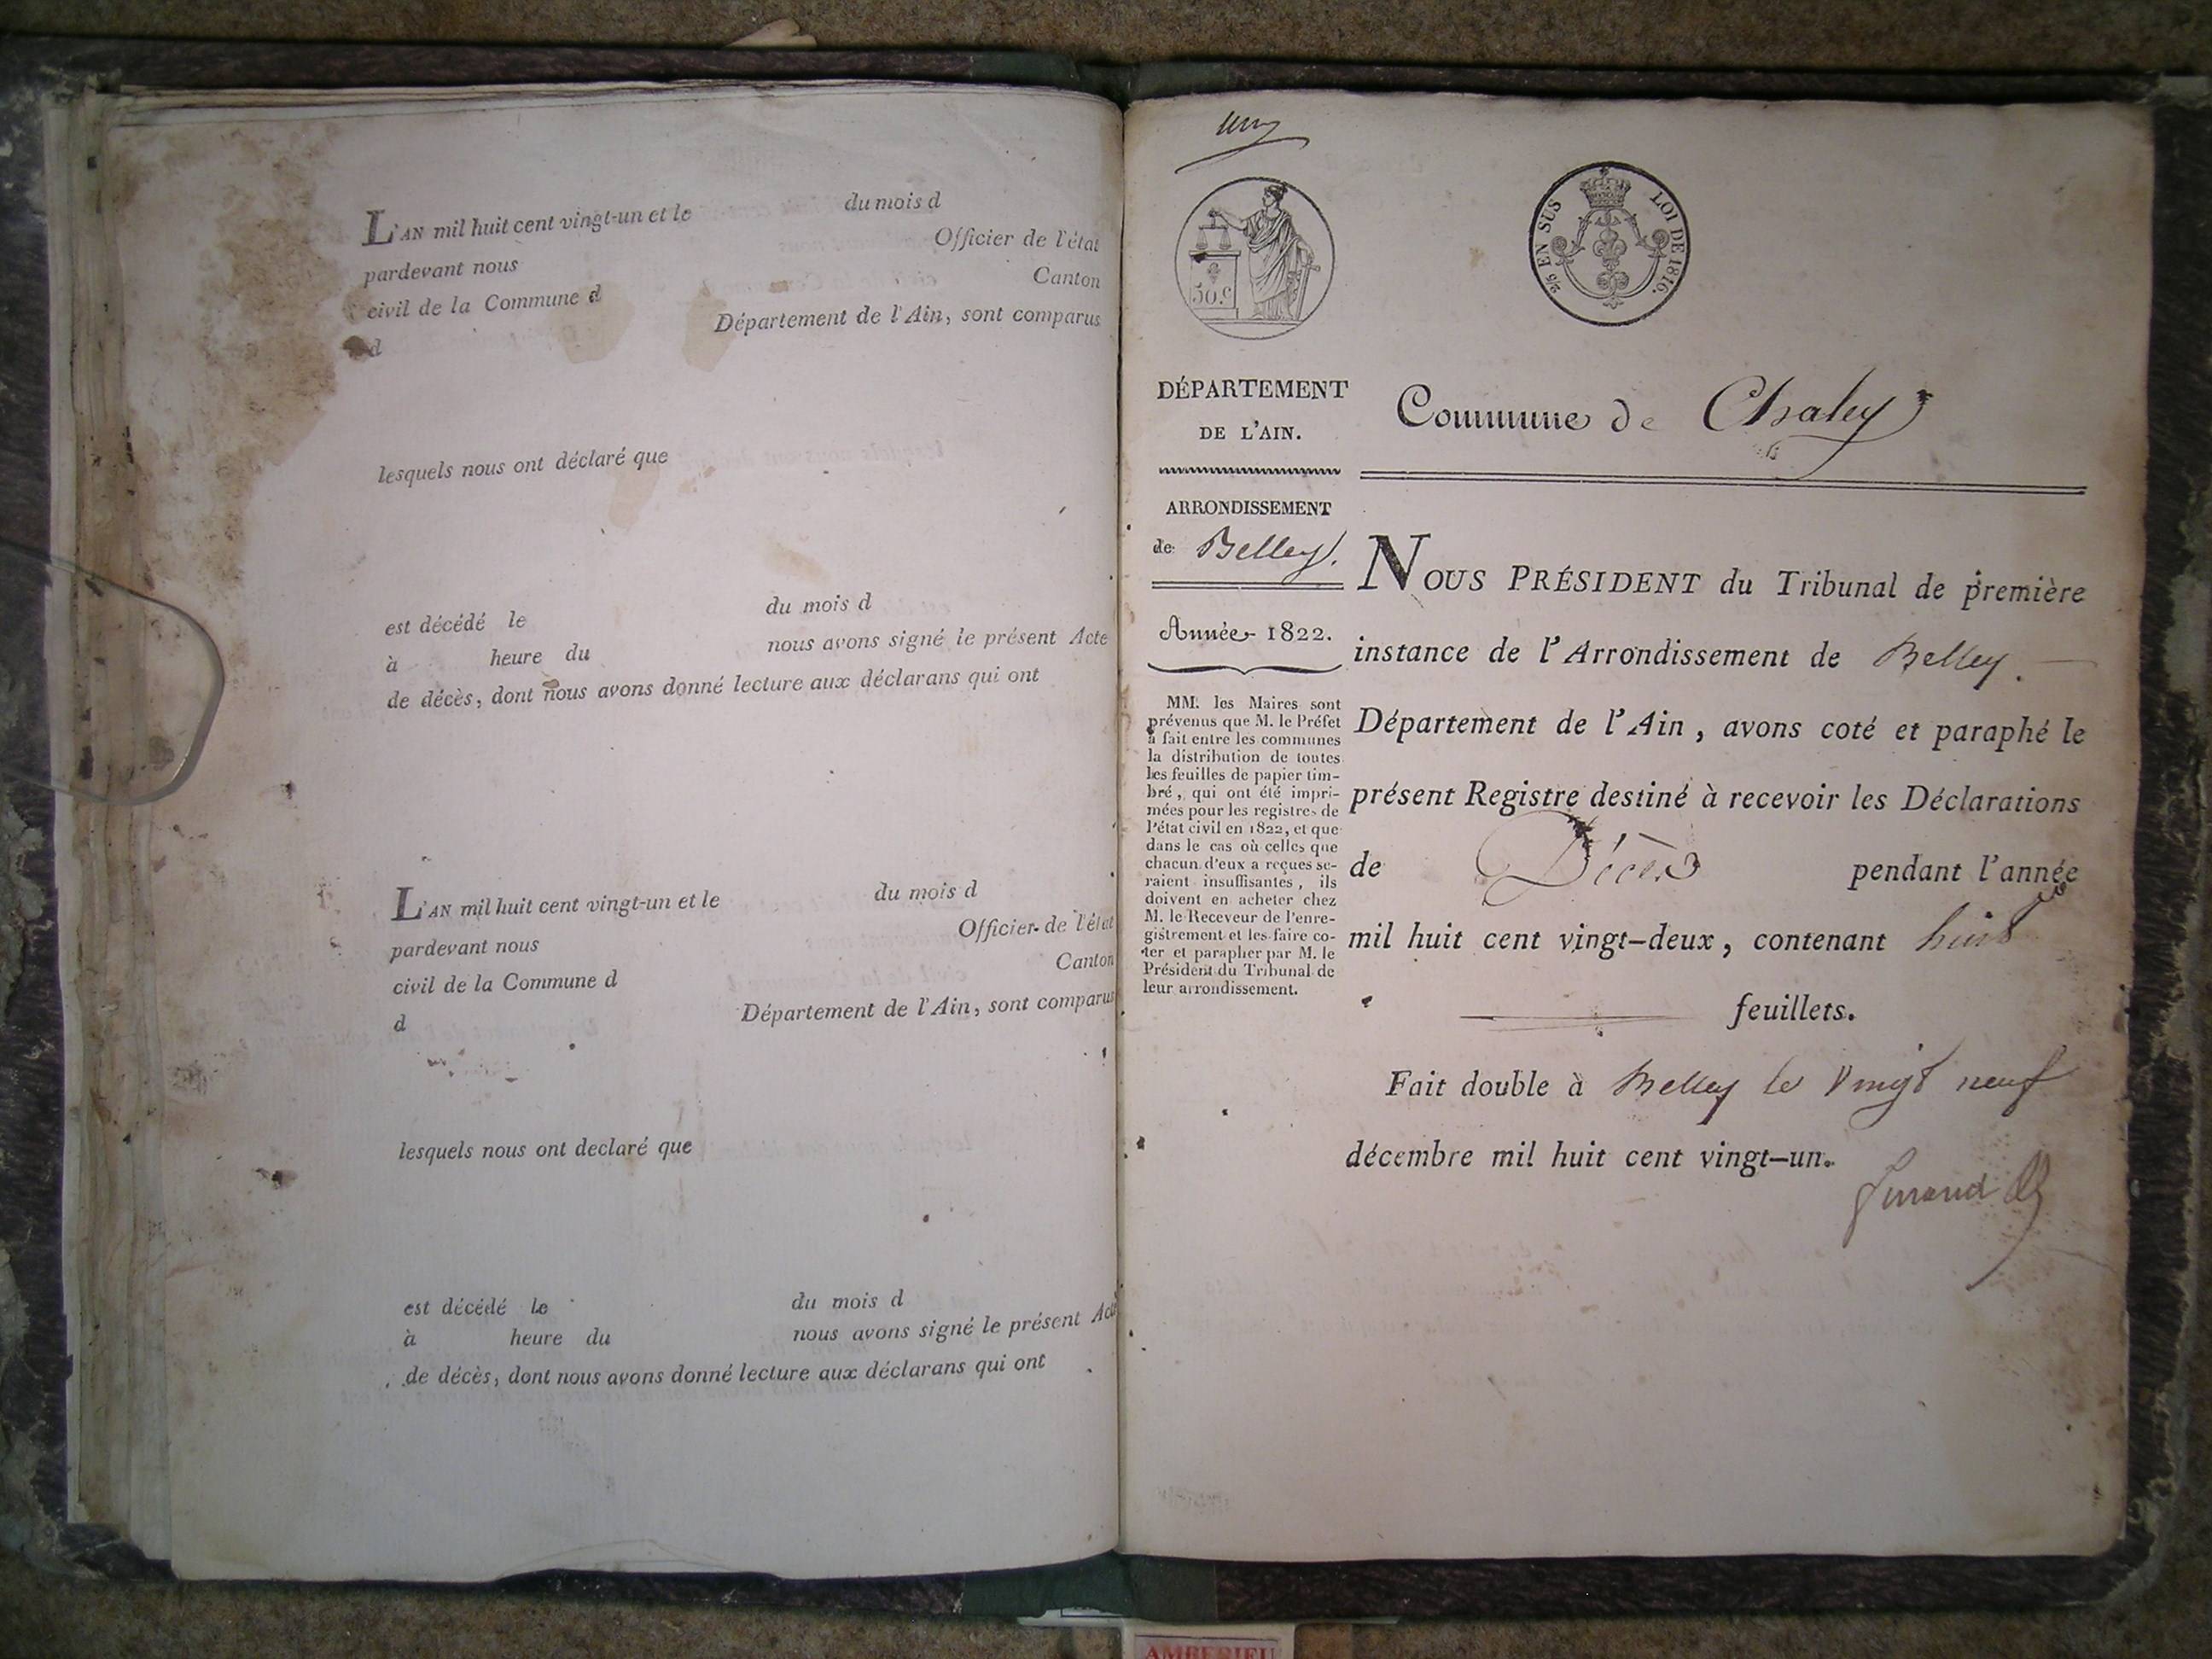 L'AN mil huit cent vingt-un et le du mois d
pardevant nous Officier de l'état
civil de la Commune d Canton
d Département de l'Ain, sont comparus
lesquels nous ont déclaré que
est décédé le du mois d
à heure du nous avons signé le présent Acte
de décès, dont nous avons donné lecture aux déclarans qui ont
L'AN mil huit cent vingt-un et le du mois d
pardevant nous Officier de l'état
civil de la Commune d Canton
d Département de l'Ain, sont comparus
lesquels nous ont declaré que
est décédé le du mois d
à heure du nous avons signé le présent Acte
de décès, dont nous avons donné lecture aux déclarans qui ont
un
50.c
EN SUS LOI DE 1816.
DÉPARTEMENT
DE L'AIN.
Commune de Chaley
ARRONDISSEMENT
de Belley.
Année 1822.
MM. les Maires sont
prévenus que M. le Préfet
a fait entre les communes
la distribution de toutes
les feuilles de papier tim-
bré, qui ont été impri-
mées pour les registres de
l'état civil en 1822, et que
dans le cas où celles que
chacun d'eux a reçues se-
raient insuffisantes, ils
doivent en acheter chez
M. le Receveur de l'enre-
gistrement et les faire co-
ter et parapher par M. le
Président du Tribunal de
leur arrondissement.
NOUS PRÉSIDENT du Tribunal de première
instance de l'Arrondissement de Belley.
Département de l'Ain, avons coté et paraphé le
présent Registre destiné à recevoir les Déclarations
de Décès pendant l'année
mil huit cent vingt-deux, contenant huit
feuillets.
Fait double à Belley le Vingt neuf
décembre mil huit cent vingt-un.
AMBERIEU